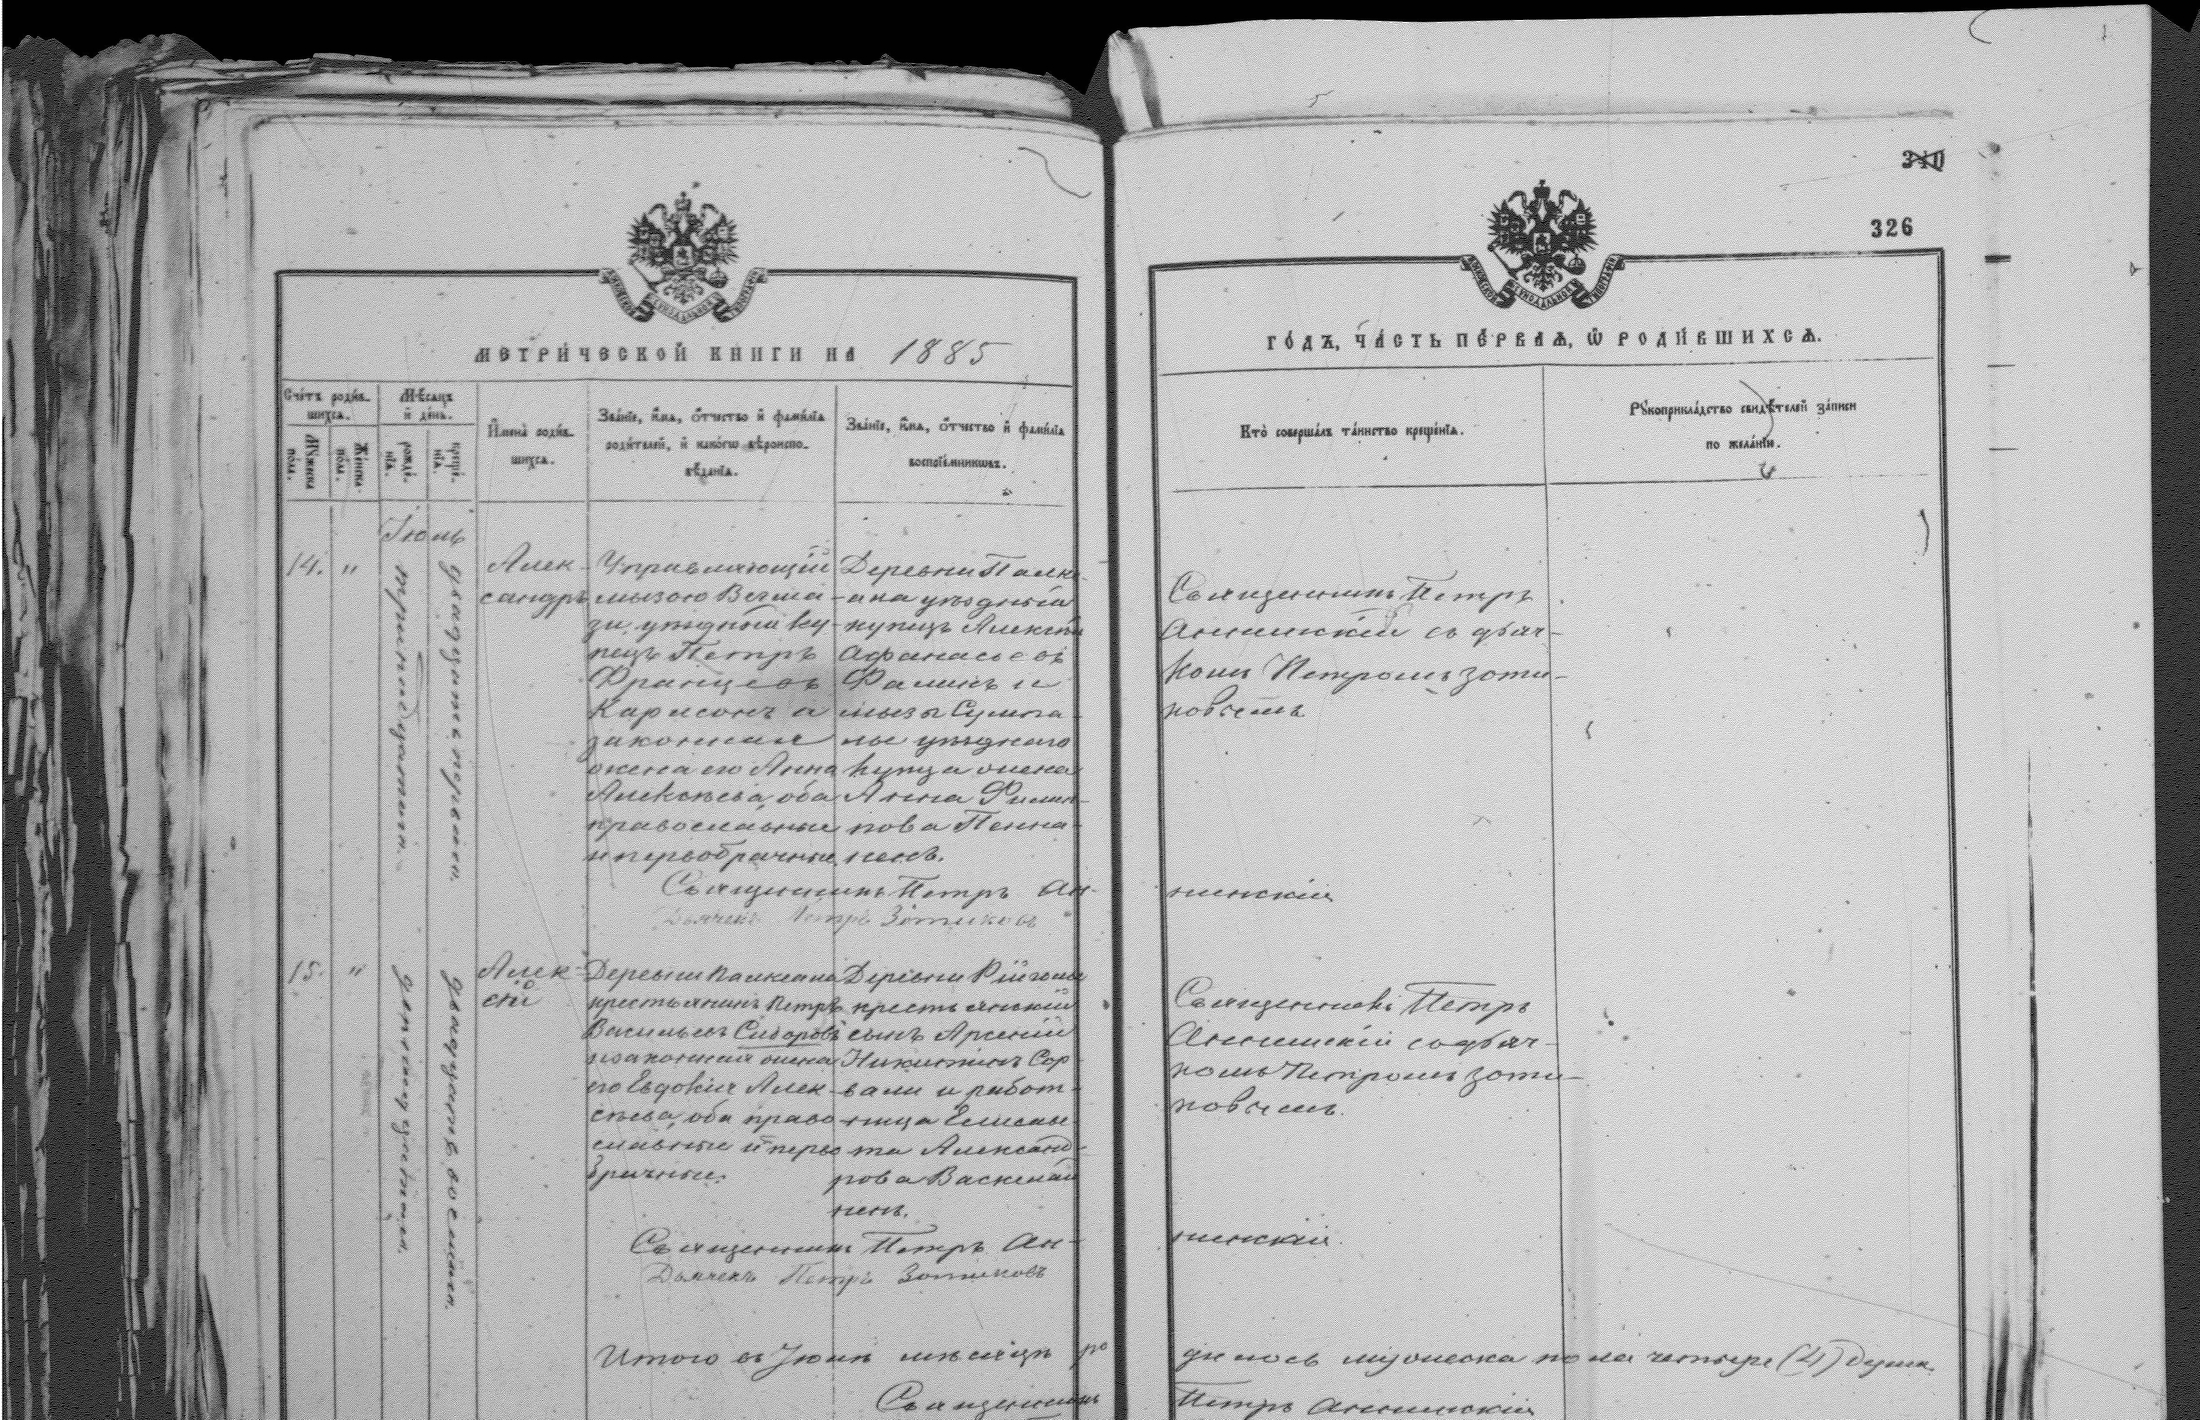 340
326
МОСКОВСКОЙ СѴНОДАЛЬНОЙ ТИПОГРАФІИ
МОСКОВСКОЙ СѴНОДАЛЬНОЙ ТИПОГРАФІИ
МЕТРИ́ЧЕСКОЙ КНИГИ НА 1885
ГО́ДЪ, ЧА́СТЬ ПЕ́РВАѦ, Ѿ РОДИ́ВШИХСѦ.
Сче́тъ роди́в-
шихсѧ.
Мꙋ́жеска
по́ла.
Же́нска
по́ла.
Мѣ́сѧцъ
и́ де́нь.
рожде́-
нїѧ.
креще́-
нїѧ.
И́мена̀ роди́в-
шихсѧ.
Зва́нїе, и́мѧ, ѻ́тчество и́ фами́лїѧ
роди́телей, и́ како́гѡ вѣроиспо-
вѣ́данїѧ.
Зва́нїе, и́мѧ, ѻ́тчество и́ фами́лїѧ
воспрїе́мникѡвъ.
Кто̀ соверша́лъ та́инство креще́нїѧ.
Рꙋкоприкла́дство свидѣ́телей за́писи
по жела́нїю.
Іюль
14. "
тринадцатаго.
двадцать перваго.
Алек-
сандръ
Управляющій
мызою Вегма-
зи, уѣздный ку-
пецъ Петръ
Францевъ
Карлсонъ и
законная
жена его Анна
Алексѣева, оба
православные
и первобрачные.
Деревни Палке-
ала уѣздный
купецъ Алексѣй
Афанасьевъ
Фалинъ и
мызы Сумпа-
лы уѣзднаго
купца жена
Анна Филип-
пова Пенна-
ненъ.
Священникъ Петръ
Аннинскій съ дьяч-
комъ Петромъ Зоти-
ковымъ
Священникъ Петръ Ан- нинскій
Дьячекъ Петръ Зотиковъ
15. "
двадцать восьмаго.
Алек-
сѣй
Деревни Палкеала
крестьянинъ Петръ
Васильевъ Сидоровъ
и законная жена
его Евдокія Алек-
сѣева, оба право-
славные и перво-
брачные.
Деревни
крестьянскій
сынъ Арсеній
Никитинъ Сор-
вали и работ-
ница Елисаве-
та Александ-
рова Васкелай
ненъ.
Священникъ Петръ
Аннинскій съ дьяч-
комъ Петромъ Зоти-
ковымъ.
Священникъ Петръ Ан- нинскій.
Дьячекъ Петръ Зотиковъ
Итого въ Іюлѣ мѣсяцѣ ро дилось мужеска пола четыре (4) души.
Священникъ Петръ Аннинскій